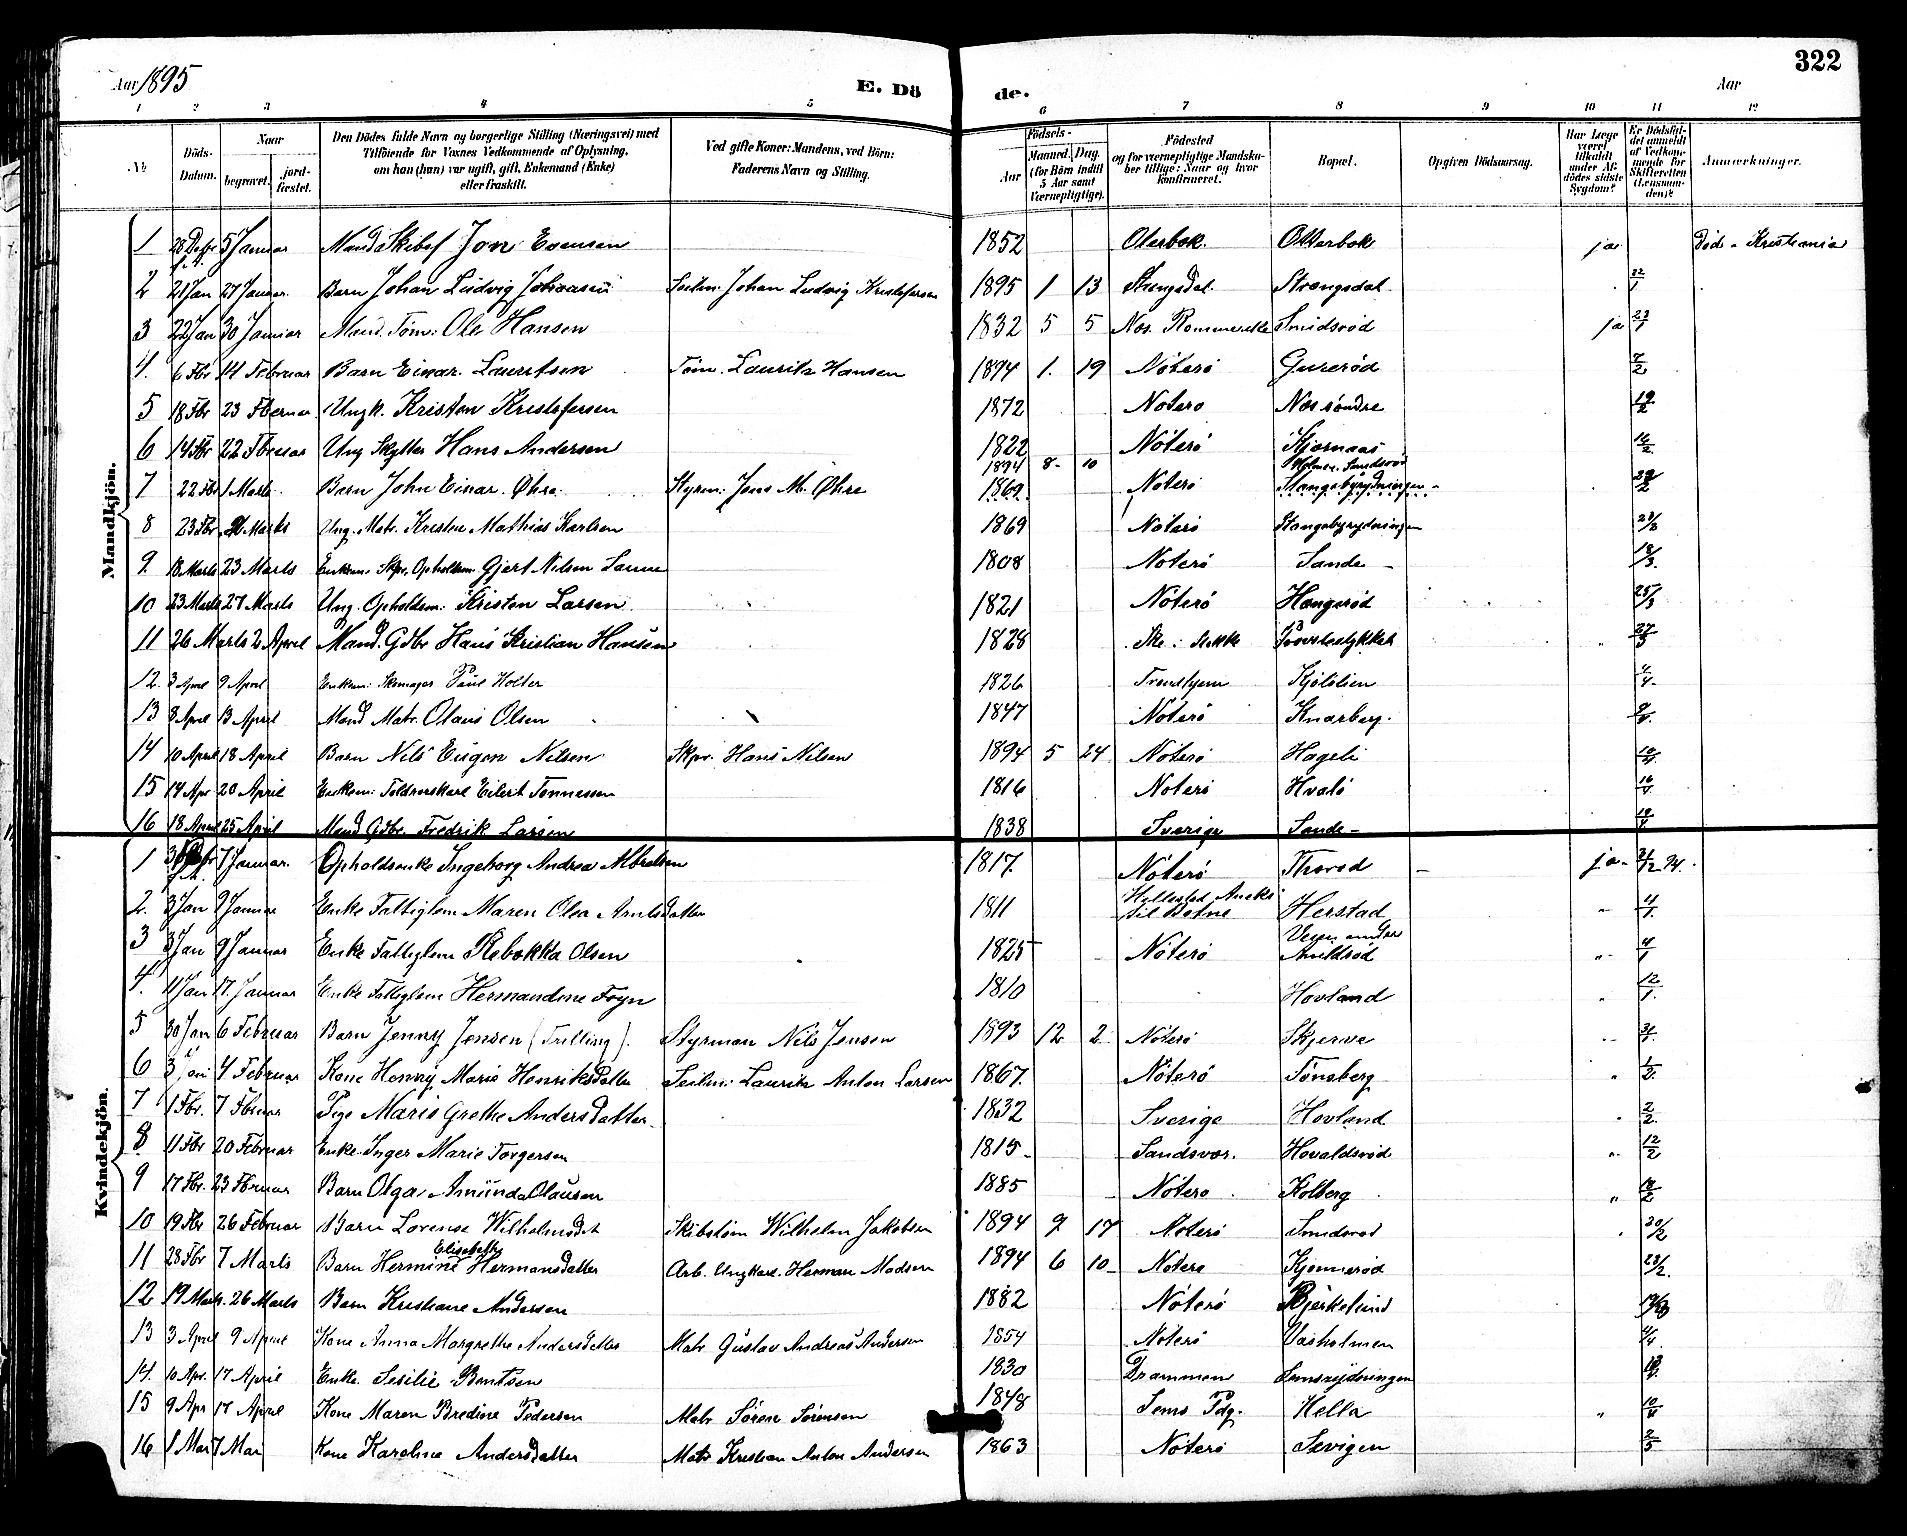 Aar 1895
E. Dö
de.
Aar
322
1 2 3 4 5 6 7 8 9 10 11 12
No
Döds-Datum.
Naar
begravet.
jordfæstet.
Den Dödes fulde Navn og borgerlige Stilling (Næringsvei) med
Tilföiende for Voxnes Vedkommende af Oplysning,
om han (hun) var ugift, gift, Enkemand (Enke)
eller fraskilt.
Ved gifte Koner: Mandens, ved Börn:
Faderens Navn og Stilling.
Födsels-
Aar
Maaned. Dag.
(for Börn indtil
5 Aar samt
Værnepligtige).
Födested
og for værnepligtige Mandska-
ber tillige: Naar og hvor
konfirmeret.
Bopæl.
Opgiven Dödsaarsag.
Har Læge
været
tilkaldt
under Af-
dödes sidste
Sygdom?
Er Dödsfal-
det anmeldt
af Vedkom-
mende for
Skifteretten
(Lensman-
den)?
Anmærkninger.
Mandkjön.
1 5 Januar Mand Skibsf Jon Evensen 1852 Oterbok. Otterbok ja Död i Kristiania
2 21 Jan 27 Januar. Barn Johan Ludvig Johansen Johan Ludvig Kristofersen 1895 1 13 Strengsdal. Strengsdal 22/1
3 22 Jan 30 Januar Mand. Töm. Ole Hansen 1832 5 5 Nes. Rommerike Smidsröd ja 23/1
4. 6 Fbr 14 Februar Barn Einar Lauritsen Töm. Lauritz Hansen 1894 1. 19 Nöterö Gureröd 7/2
5 18 Fbr 23 Fberuar Ungk. Kristen Kristofersen 1872 Nöterö Nes söndre 19/2
6 14 Fbr 22 Fbruar Ung Skytter Hans Andersen 1822 Nöterö Kjornaas 16/2
7 22 Fbr 1 Marts. Barn John Einar. Øhre. Styrm. Jens M. Øhre 1894 8 10 1869 Nöterö Holmen. Smidsröd Stangebyrydningen
8 23 Fbr 2 Marts Ung. Matr. Kristen Mathias Karlsen 1869 Nöterö Stangebyrydningen
9. 18 Marts 23 Marts Enkem. Skpr. Opholdsm Gjert Nilsen Sanne 1808 Nöterö Sande 18/3.
10 23 Marts 27 Marts Ung. Opholdsm: Kristen Larsen 1821 Nöterö Hængeröd 25/3
11 26 Marts 2 April Mand. Gdbr Hans Kristian Hansen 1828 27/3
12. 3 April 9 April Enkem: Skomager Paul Holter 1826 Trondhjem Kjölölien 4/4
13 8 April 13 April Mand Matr. Olaus Olsen 1847 Nöterö Knarberg. 9/4
14 10 April 18 April Barn Nils Eugen Nilsen Skpr. Hans Nilsen 1894 5 24 Nöterö Hageli 10/4
15 14 Apr 20 April Enkem: Toldroerskarl Eilert Tønnessen 1816 Nöterö Hvalö 16/4
16 18 April 25 April Mand Gdbr. Fredrik Larsen 1838 Sverige Sande 19/4
Kvindekjön.
1 7 Januar. Opholdsenke Ingeborg Andrea 1817. Nöterö Thorød ja 31/12 94.
2. 3 Jan 9 Januar Enke Fattiglem Maren Olea Arntsdatter 1811 Herstad 4/1.
3 3 Jan 9 Januar Enke Fattiglem Rebekka Olsen 1825 Nöterö 4/1
4. 11 Jan 17. Januar Enke Fattiglem Hermandine Foyn 1810 Hovland 12/1.
5 30 Jan 6 Februar Barn Jenny Jensen (Trilling). Styrman Nils Jensen 1893 12 2 Nöterö Skjerve 31/1
6 4 Februar Kone Henny Marie Henriksdatter Lauritz Anton Larsen 1867. Nöterö Tönsberg 1/2.
7 1 Fbr. 7 Fbruar Pige Maris Grethe Andersdatter. 1832 Sverige Hovland 2/2.
8 11 Fbr 20 Februar Enke Inger Marie Torgersen 1815 Sandsvær. Hovaldsröd 12/2
9 17 Fbr. 23 Fbruar Barn Olga Amunda Olausen 1885 Nötero Kolberg 18/2
10 19 Fbr 26 Februar Barn Lorense Wilhelmsdt Skibstöm Wilhelm Jakobsen 1894 9 17 Nöterö Smidsröd 20/2
11 28 Fbr 7 Marts Barn Hermine Elisabeth Hermansdatter Arb. Ungkarl. Herman Madsen 1894 6 10 Nöterö Kjonneröd 23/2.
12 19 Mart. 26 Marts Barn Kristiane Andersen 1882 Nöterö Bjerkelund
13 3 April 9 April Kone Anna Margrethe Andersdatter Matr Gustav Andreas Andersen 1854 Nöterö Vasholmen 4/4.
14. 10 Apr. 17 April Enke. Sesilie Bentsen 1830 Drammen
15 9 Apr 17 April Kone Maren Bredine Pedersen Matr Sören Sörensen 1848 Sems Pdg. Hella 10/4
16 1 Mai 7 Mai Kone Karoline Andersdatter Matr Kristian Anton Andersen 1863 Nöterö Sevigen 2/5